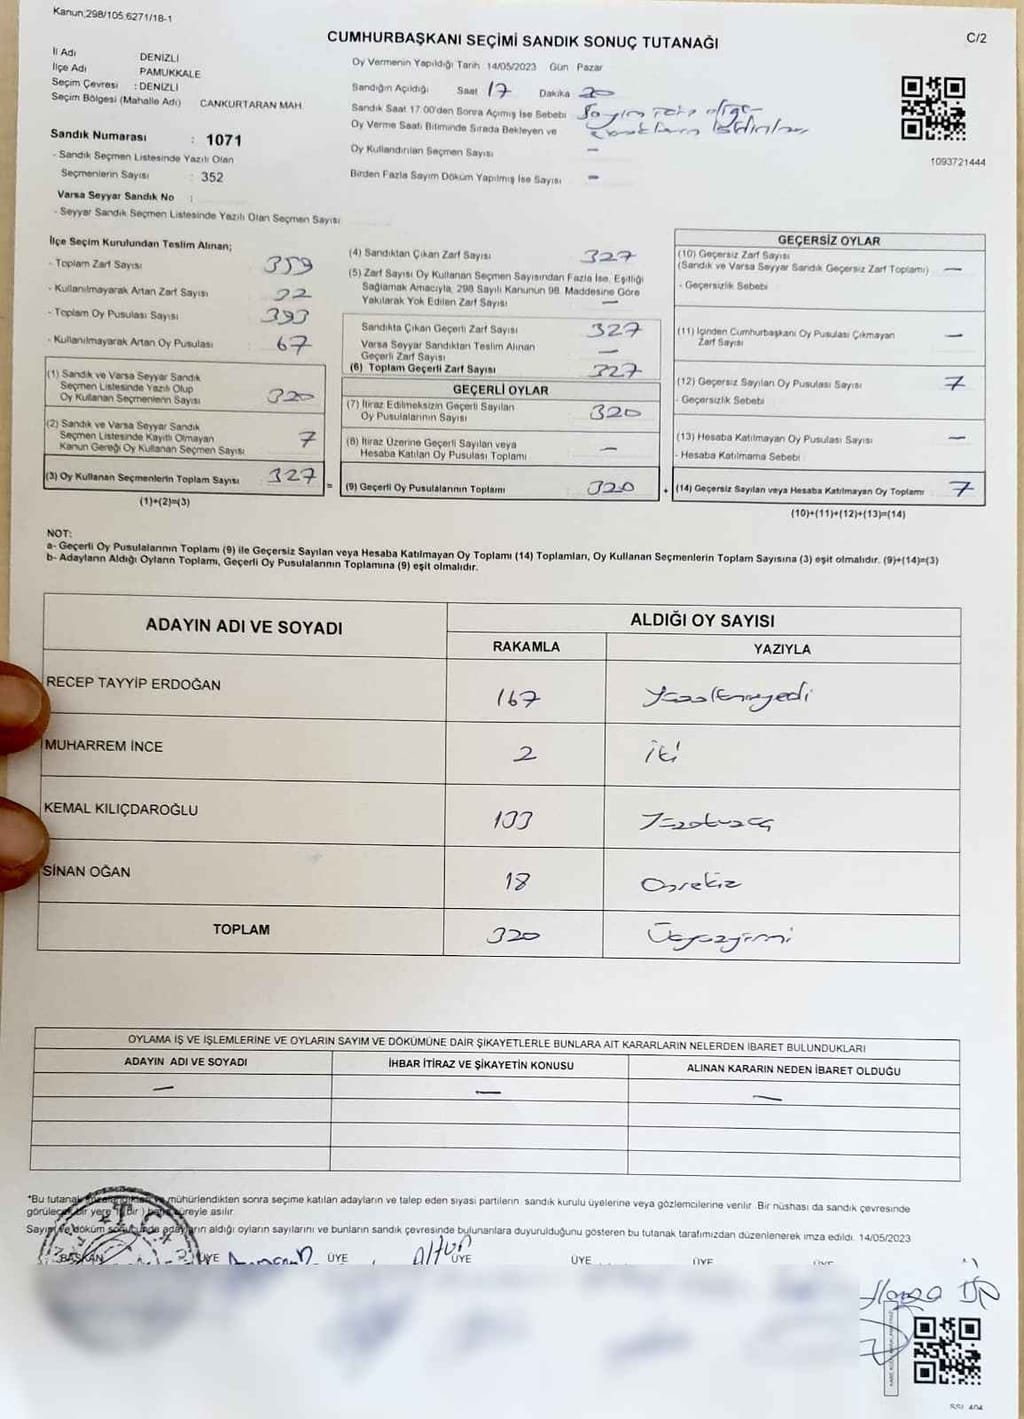 Kanun;298/105,6271/18-1
CUMHURBAŞKANI SEÇİMİ SANDIK SONUÇ TUTANAĞI
C/2
İl Adı DENİZLİ
İlçe Adı PAMUKKALE
Seçim Çevresi : DENİZLİ
Seçim Bölgesi (Mahalle Adı) CANKURTARAN MAH.
Sandık Numarası : 1071
- Sandık Seçmen Listesinde Yazılı Olan
Seçmenlerin Sayısı : 352
Varsa Seyyar Sandık No :
- Seyyar Sandık Seçmen Listesinde Yazılı Olan Seçmen Sayısı
Oy Vermenin Yapıldığı Tarih :14/05/2023 Gün : Pazar
Sandığın Açıldığı Saat 17 Dakika 20
Sandık Saat 17:00'den Sonra Açılmış İse Sebebi
Oy Verme Saati Bitiminde Sırada Bekleyen ve
Oy Kullandırılan Seçmen Sayısı —
Birden Fazla Sayım Döküm Yapılmış İse Sayısı —
1093721444
İlçe Seçim Kurulundan Teslim Alınan;
- Toplam Zarf Sayısı 359
- Kullanılmayarak Artan Zarf Sayısı
- Toplam Oy Pusulası Sayısı 393
- Kullanılmayarak Artan Oy Pusulası 67
(1) Sandık ve Varsa Seyyar Sandık
Seçmen Listesinde Yazılı Olup
Oy Kullanan Seçmenlerin Sayısı 320
(2) Sandık ve Varsa Seyyar Sandık
Seçmen Listesinde Kayıtlı Olmayan
Kanun Gereği Oy Kullanan Seçmen Sayısı 7
(3) Oy Kullanan Seçmenlerin Toplam Sayısı 327 =
(1)+(2)=(3)
(4) Sandıktan Çıkan Zarf Sayısı 327
(5) Zarf Sayısı Oy Kullanan Seçmen Sayısından Fazla İse, Eşitliği
Sağlamak Amacıyla, 298 Sayılı Kanunun 98. Maddesine Göre
Yakılarak Yok Edilen Zarf Sayısı —
Sandıkta Çıkan Geçerli Zarf Sayısı 327
Varsa Seyyar Sandıktan Teslim Alınan
Geçerli Zarf Sayısı —
(6) Toplam Geçerli Zarf Sayısı 327
GEÇERLİ OYLAR
(7) İtiraz Edilmeksizin Geçerli Sayılan
Oy Pusulalarının Sayısı 320
(8) İtiraz Üzerine Geçerli Sayılan veya
Hesaba Katılan Oy Pusulası Toplamı —
(9) Geçerli Oy Pusulalarının Toplamı 320 +
GEÇERSİZ OYLAR
(10) Geçersiz Zarf Sayısı
(Sandık ve Varsa Seyyar Sandık Geçersiz Zarf Toplamı) —
- Geçersizlik Sebebi
(11) İçinden Cumhurbaşkanı Oy Pusulası Çıkmayan
Zarf Sayısı —
(12) Geçersiz Sayılan Oy Pusulası Sayısı 7
- Geçersizlik Sebebi
(13) Hesaba Katılmayan Oy Pusulası Sayısı —
- Hesaba Katılmama Sebebi
(14) Geçersiz Sayılan veya Hesaba Katılmayan Oy Toplamı 7
(10)+(11)+(12)+(13)=(14)
NOT:
a- Geçerli Oy Pusulalarının Toplamı (9) ile Geçersiz Sayılan veya Hesaba Katılmayan Oy Toplamı (14) Toplamları, Oy Kullanan Seçmenlerin Toplam Sayısına (3) eşit olmalıdır. (9)+(14)=(3)
b- Adayların Aldığı Oyların Toplamı, Geçerli Oy Pusulalarının Toplamına (9) eşit olmalıdır.
ADAYIN ADI VE SOYADI
ALDIĞI OY SAYISI
RAKAMLA YAZIYLA
RECEP TAYYİP ERDOĞAN 167
MUHARREM İNCE 2 iki
KEMAL KILIÇDAROĞLU 133
SİNAN OĞAN 18 Onsekiz
TOPLAM 320 Üçyüzyirmi
OYLAMA İŞ VE İŞLEMLERİNE VE OYLARIN SAYIM VE DÖKÜMÜNE DAİR ŞİKAYETLERLE BUNLARA AİT KARARLARIN NELERDEN İBARET BULUNDUKLARI
ADAYIN ADI VE SOYADI İHBAR İTİRAZ VE ŞİKAYETİN KONUSU ALINAN KARARIN NEDEN İBARET OLDUĞU
— — —
*Bu tutanak mühürlendikten sonra seçime katılan adayların ve talep eden siyasi partilerin sandık kurulu üyelerine veya gözlemcilerine verilir. Bir nüshası da sandık çevresinde
görülecek bir yere süreyle asılır.
Sayım ve döküm adayların aldığı oyların sayılarını ve bunların sandık çevresinde bulunanlara duyurulduğunu gösteren bu tutanak tarafımızdan düzenlenerek imza edildi. 14/05/2023
BAŞKAN ÜYE ÜYE ÜYE ÜYE ÜYE ÜYE